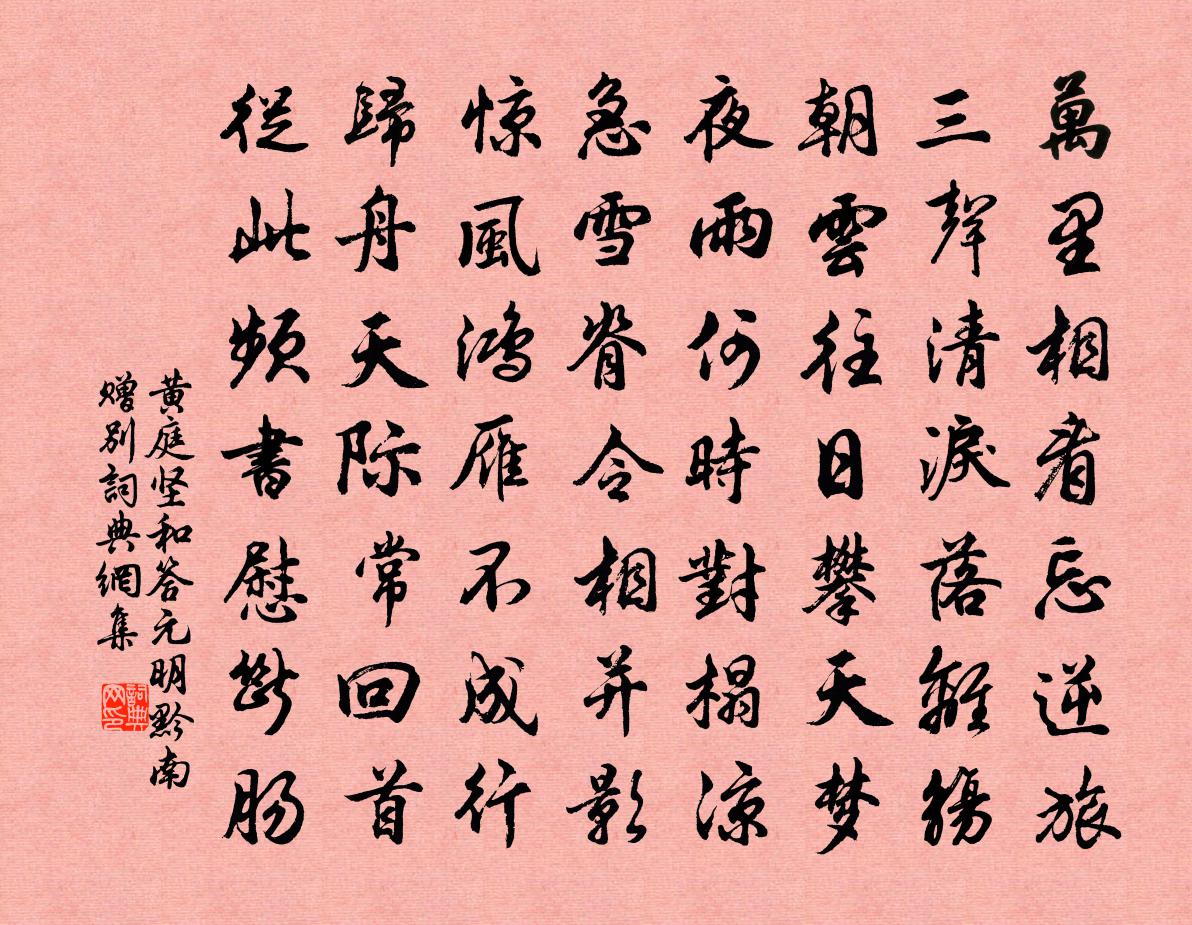 萬里相看忘逆旅
三聲清淚落離觴
朝雲往日攀天梦
夜雨何時對榻涼
急雪脊令相并影
惊風鸿雁不成行
歸舟天际常回首
從此频書慰斷肠
黄庭坚和答元明黔南
赠别詞典網集
詞典网印